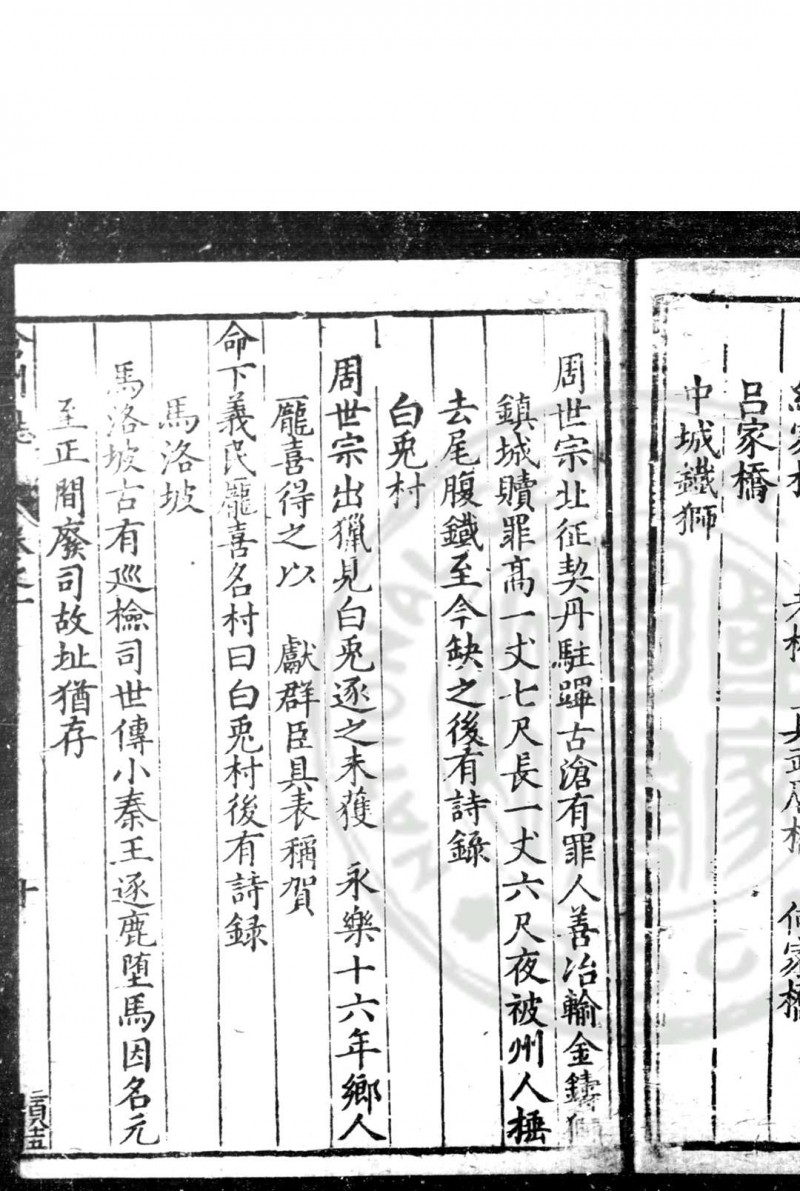 呂家橋
中城鐵獅
周世宗北征契丹駐蹕古滄有罪人善冶輸金鑄獅
鎮城贖罪高一丈七尺長一丈六尺夜被州人捶
去尾腹鐵至今缺之後有詩錄
白兎村
周世宗出獵見白兎逐之未獲 永樂十六年鄉人
龎喜得之以 獻群臣具表稱賀
命下義民龎喜名村曰白兎村後有詩録
馬洛坡
馬洛坡古有巡檢司世傳小秦王逐鹿墮馬因名元
至正間廢司故址猶存